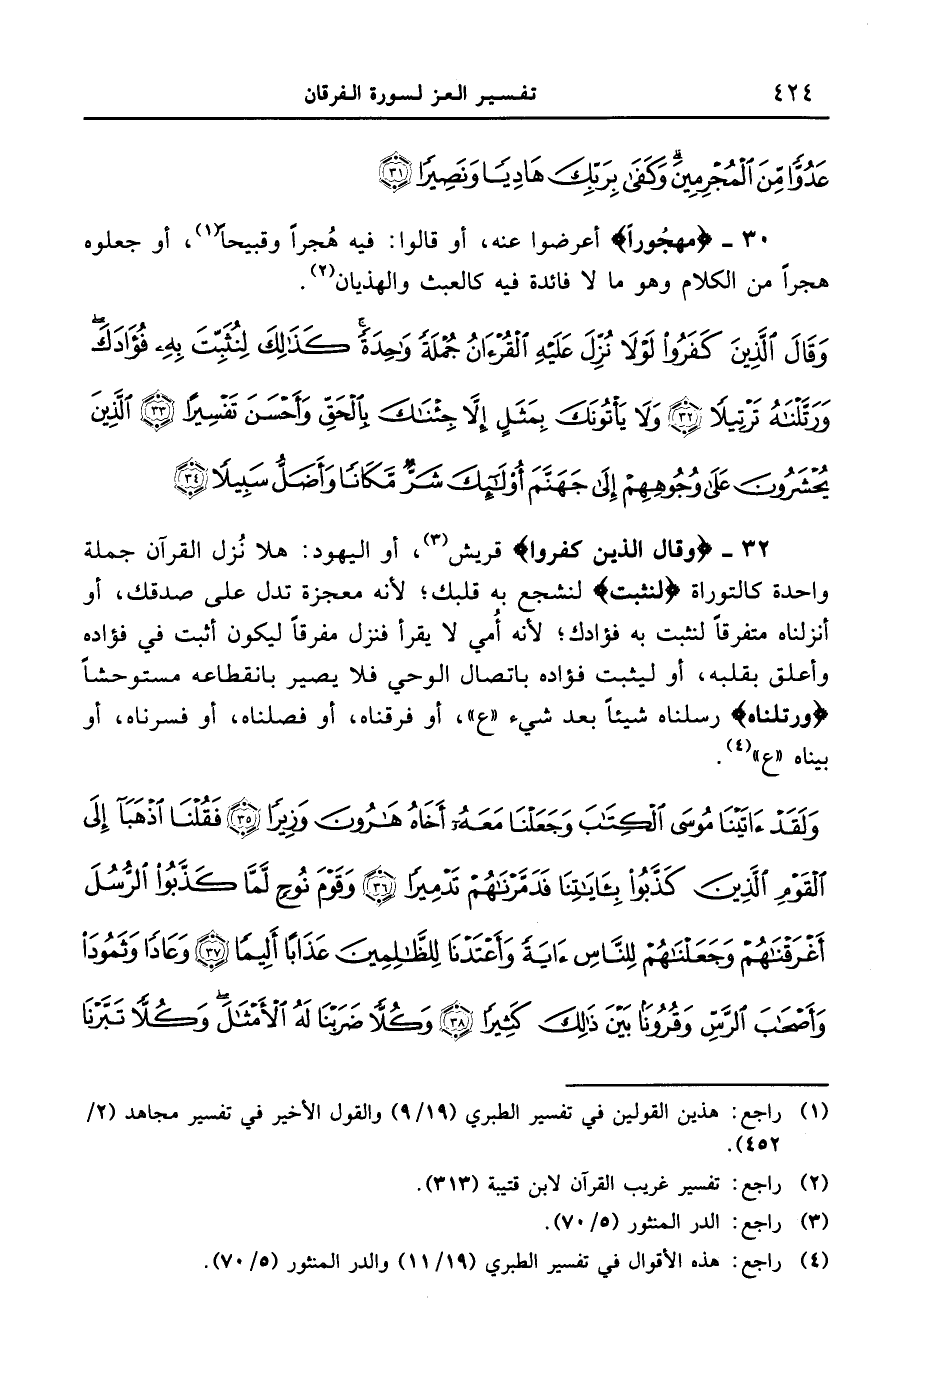 ٤٢٤ تفسير العز لسورة الفرقان
عَدُوًّا مِّنَ ٱلْمُجْرِمِينَ ۗ وَكَفَىٰ بِرَبِّكَ هَادِيًا وَنَصِيرًا ٣١
٣٠ ـ ﴿مهجُوراً﴾ أعرضوا عنه، أو قالوا: فيه هُجراً وقبيحاً(١)، أو جعلوه
هجراً من الكلام وهو ما لا فائدة فيه كالعبث والهذيان(٢).
وَقَالَ ٱلَّذِينَ كَفَرُوا۟ لَوْلَا نُزِّلَ عَلَيْهِ ٱلْقُرْءَانُ جُمْلَةً وَٰحِدَةً ۚ كَذَٰلِكَ لِنُثَبِّتَ بِهِۦ فُؤَادَكَ ۖ
وَرَتَّلْنَٰهُ تَرْتِيلًا ٣٢ وَلَا يَأْتُونَكَ بِمَثَلٍ إِلَّا جِئْنَٰكَ بِٱلْحَقِّ وَأَحْسَنَ تَفْسِيرًا ٣٣ ٱلَّذِينَ
يُحْشَرُونَ عَلَىٰ وُجُوهِهِمْ إِلَىٰ جَهَنَّمَ أُو۟لَٰٓئِكَ شَرٌّ مَّكَانًا وَأَضَلُّ سَبِيلًا ٣٤
٣٢ ـ ﴿وقال الذين كفروا﴾ قريش(٣)، أو اليهود: هلا نُزل القرآن جملة
واحدة كالتوراة ﴿لنثبت﴾ لنشجع به قلبك؛ لأنه معجزة تدل على صدقك، أو
أنزلناه متفرقاً لنثبت به فؤادك؛ لأنه أُمي لا يقرأ فنزل مفرقاً ليكون أثبت في فؤاده
وأعلق بقلبه، أو ليثبت فؤاده باتصال الوحي فلا يصير بانقطاعه مستوحشاً
﴿ورتلناه﴾ رسلناه شيئاً بعد شيء «ع»، أو فرقناه، أو فصلناه، أو فسرناه، أو
بيناه «ع»(٤).
وَلَقَدْ ءَاتَيْنَا مُوسَى ٱلْكِتَٰبَ وَجَعَلْنَا مَعَهُۥٓ أَخَاهُ هَٰرُونَ وَزِيرًا ٣٥ فَقُلْنَا ٱذْهَبَآ إِلَى
ٱلْقَوْمِ ٱلَّذِينَ كَذَّبُوا۟ بِـَٔايَٰتِنَا فَدَمَّرْنَٰهُمْ تَدْمِيرًا ٣٦ وَقَوْمَ نُوحٍ لَّمَّا كَذَّبُوا۟ ٱلرُّسُلَ
أَغْرَقْنَٰهُمْ وَجَعَلْنَٰهُمْ لِلنَّاسِ ءَايَةً وَأَعْتَدْنَا لِلظَّٰلِمِينَ عَذَابًا أَلِيمًا ٣٧ وَعَادًا وَثَمُودَا۟
وَأَصْحَٰبَ ٱلرَّسِّ وَقُرُونًۢا بَيْنَ ذَٰلِكَ كَثِيرًا ٣٨ وَكُلًّا ضَرَبْنَا لَهُ ٱلْأَمْثَٰلَ ۖ وَكُلًّا تَبَّرْنَا
(١) راجع: هذين القولين في تفسير الطبري (٩/١٩) والقول الأخير في تفسير مجاهد (٢/
٤٥٢).
(٢) راجع: تفسير غريب القرآن لابن قتيبة (٣١٣).
(٣) راجع: الدر المنثور (٧٠/٥).
(٤) راجع: هذه الأقوال في تفسير الطبري (١١/١٩) والدر المنثور (٧٠/٥).